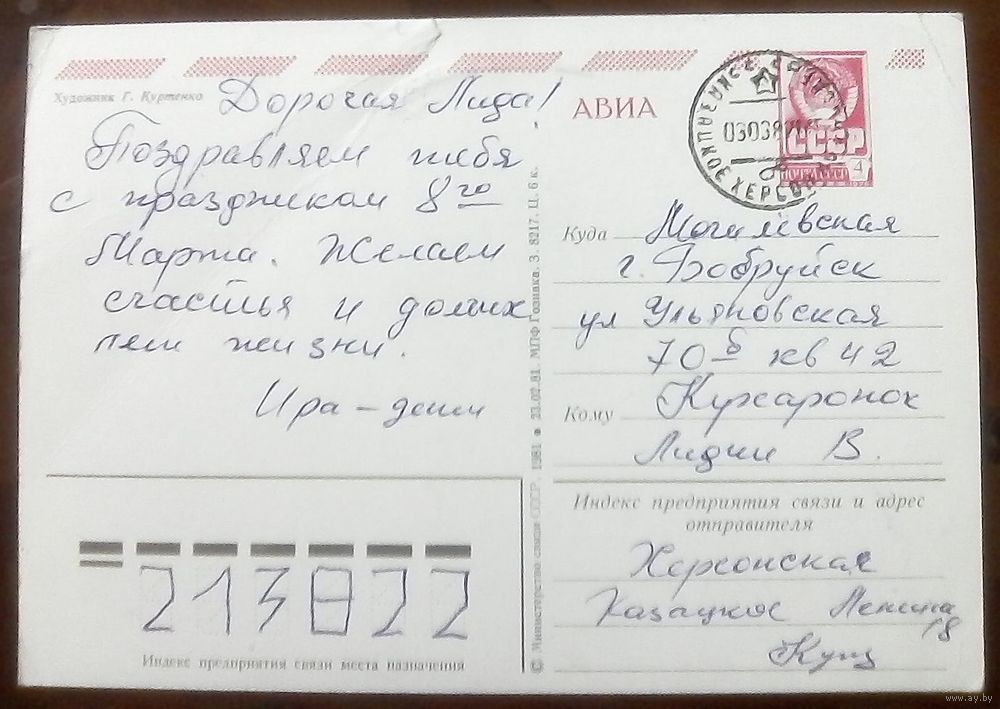 Художник Г. Куртенко
Дорогая Лида!
Поздравляем тебя
с праздником 8го
Марта. Желаем
счастья и долгих
лет жизни.
Ира – дети
АВИА
030382
СССР
ПОЧТА СССР 4
Куда Могилёвская
г. Бобруйск
ул Ульяновская
70б кв 42
Кому Кухаронок
Лидии В.
Индекс предприятия связи и адрес
отправителя
Херсонская
Казацкое Ленина
18
Кущ
213822
Индекс предприятия связи места назначения
© Министерство связи СССР. 1981 • 23.02.81. МПФ Гознака. З. 8217. Ц. 6 к.
www.ay.by